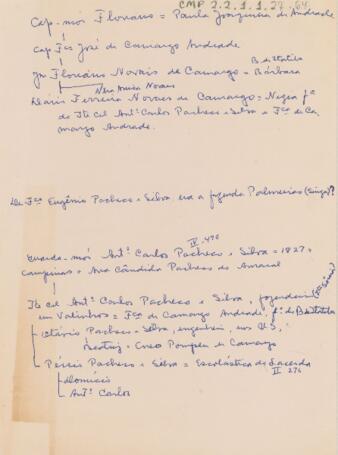 CMP 2.2.1.1.27-64
Cap-mór Floriano = Paula Joaquina de Andrade
Cap Fco José de Camargo Andrade
B. de Itatiba
Floriano Novais de Camargo = Bárbara
Novaes
Ferreira Novaes de Camargo = fa
do Te Cel Anto Carlos Pacheco e Silva e Fca de Ca
margo Andrade.
De Fco Eugênio Pacheco e Silva, era a fazenda Palmeiras ?
IV-476
Guarda-mór Anto Carlos Pacheco e Silva = 1827 =
Campinas = Ana Cândida Pacheco do Amaral
Te Cel Anto Carlos Pacheco e Silva, fazendeiro
em Valinhos = Fca de Camargo Andrade, fa do B de Itatiba
Otávio Pacheco e Silva, engenheiro, nos U.S,
Beatriz = Cneo Pompeu de Camargo
Pérsio Pacheco e Silva = Escolástica de Lacerda
II 276
Domício
Anto Carlos